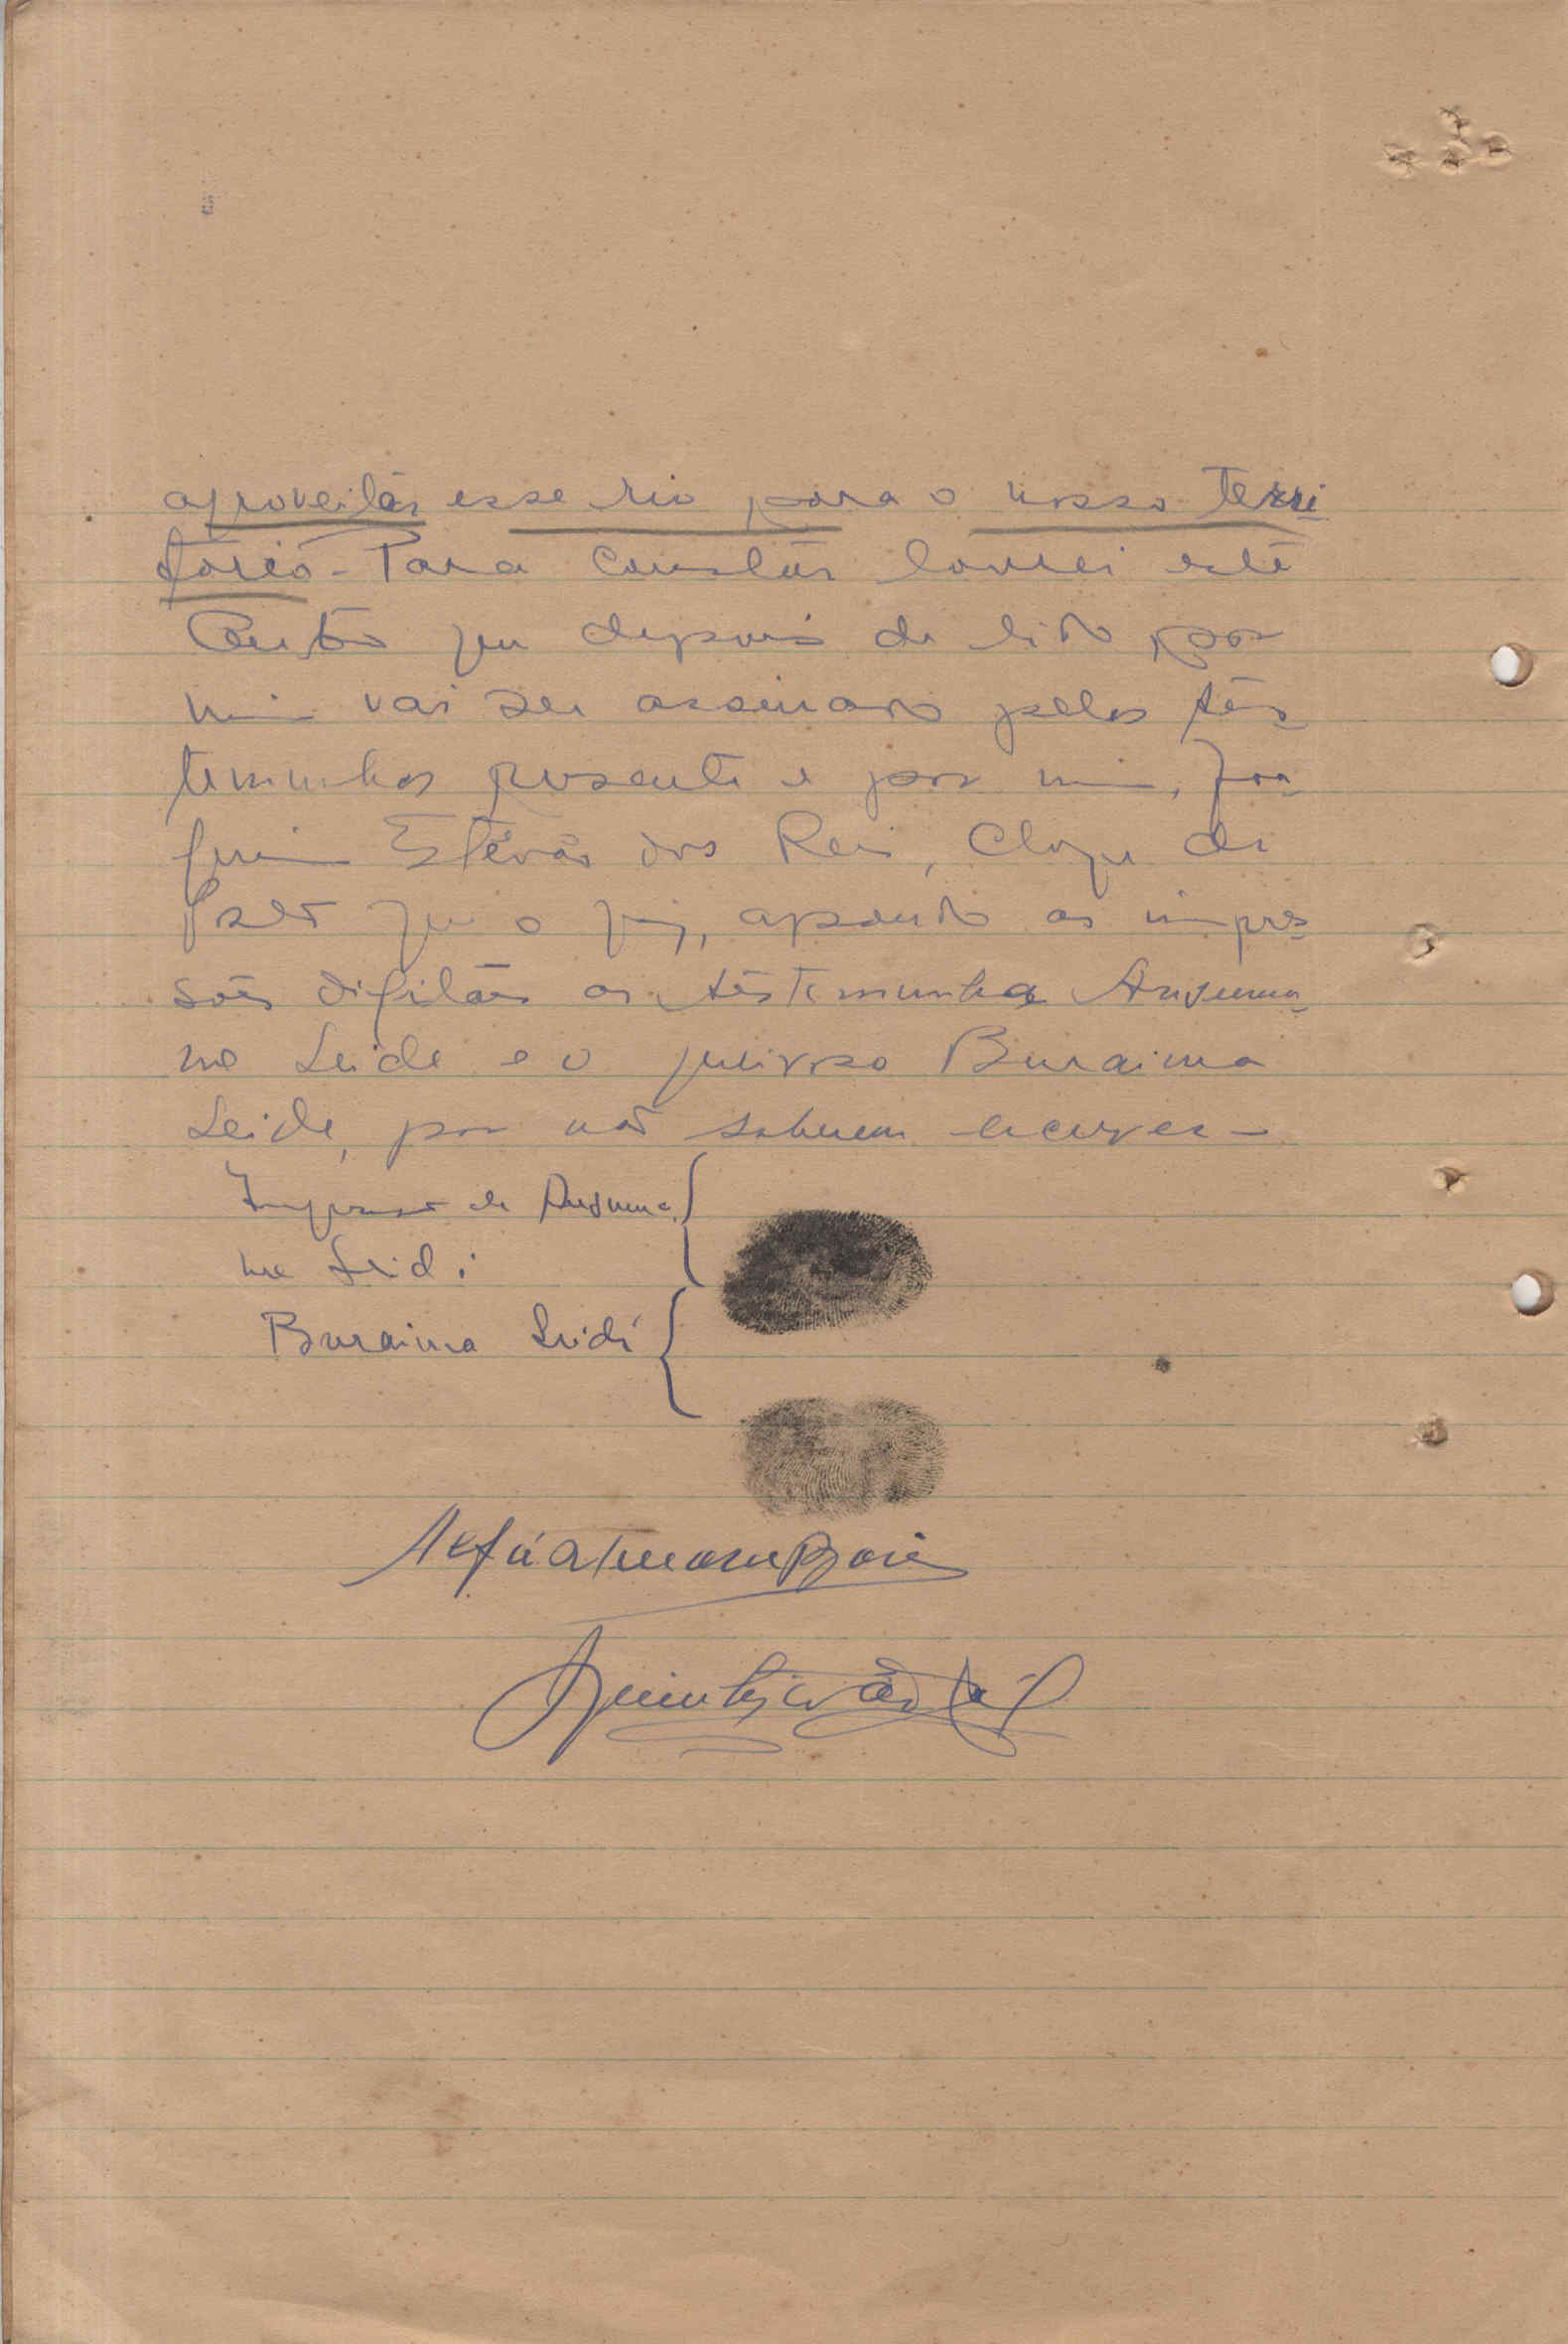 aproveitár esse rio para o nosso terri
tório - Para constár lavrei este
Auto que depois de lido por
mim vai ser assinado pelas tês-
temunhas presente e por mim, Joa-
quim Estêvão dos Reis, Chefe de
Posto que o fiz, apondo as impres-
sões digitáes as têstemunha
Leide e o queixoso Buraima
Leide, por não saberem escrever -
Impressão de
me Leidi
Buraima Leidi